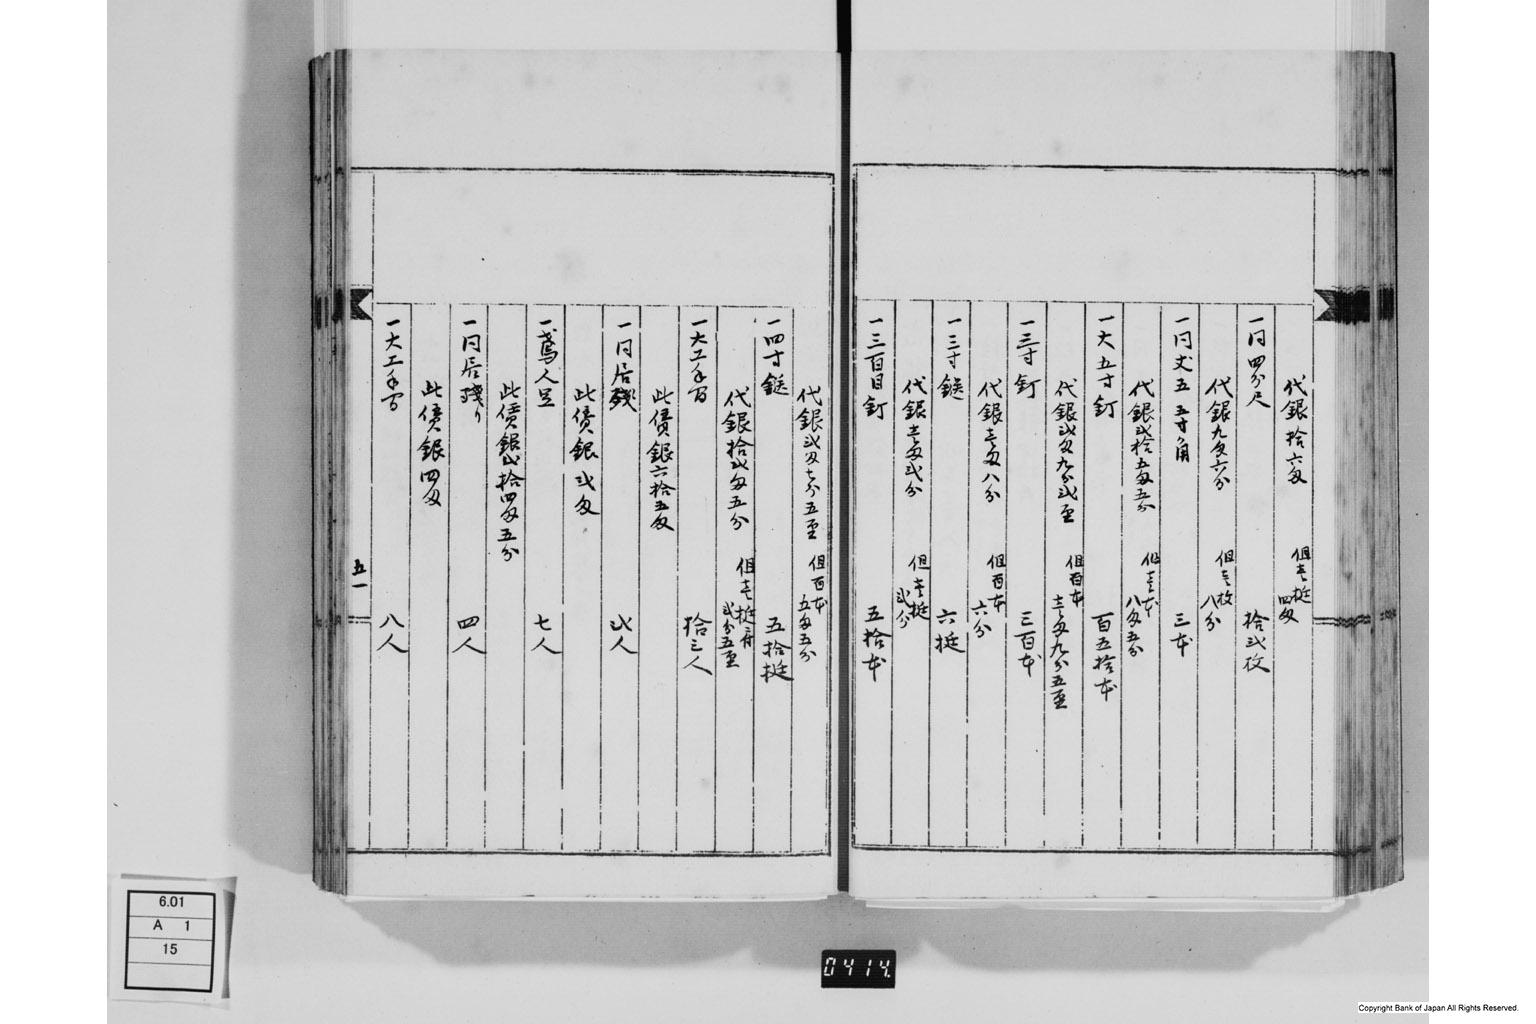 代銀拾六匁 但壱挺四匁
一同四分尺 拾弐枚
代銀九匁六分 但壱枚八分
一同丈五 五寸角 三本
代銀弐拾五匁五分 但壱本八匁五分
一大五寸釘 百五拾本
代銀弐匁九分弐厘 但百本壱匁九分五厘
一三寸釘 三百本
代銀壱匁八分 但百本六分
一三寸鎹 六挺
代銀壱匁弐分 但壱挺弐分
一三百目釘 五拾本
代銀弐匁七分五厘 但百本五匁五分
一四寸鎹 五拾挺
代銀拾弐匁五分 但壱挺ニ付弐分五厘
一大工手間 拾三人
此賃銀六拾五匁
一同居残 弐人
此賃銀弐匁
一鳶人足 七人
此賃銀弐拾四匁五分
一同居残り 四人
此賃銀四匁
一大工手間 八人
五一
0414.
6.01
A 1
15
Copyright Bank of Japan All Rights Reserved.